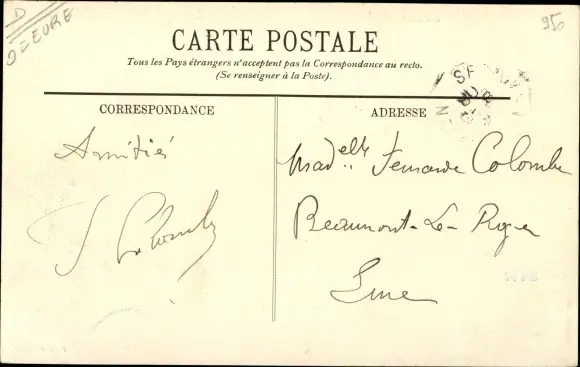 D
D=EURE
950
CARTE POSTALE
Tous les Pays étrangers n'acceptent pas la Correspondance au recto.
(Se renseigner à la Poste).
CORRESPONDANCE
ADRESSE
Amitiés
Colomb
Mad elle Fernande Colombe
Beaumont-Le-Roger
Eure